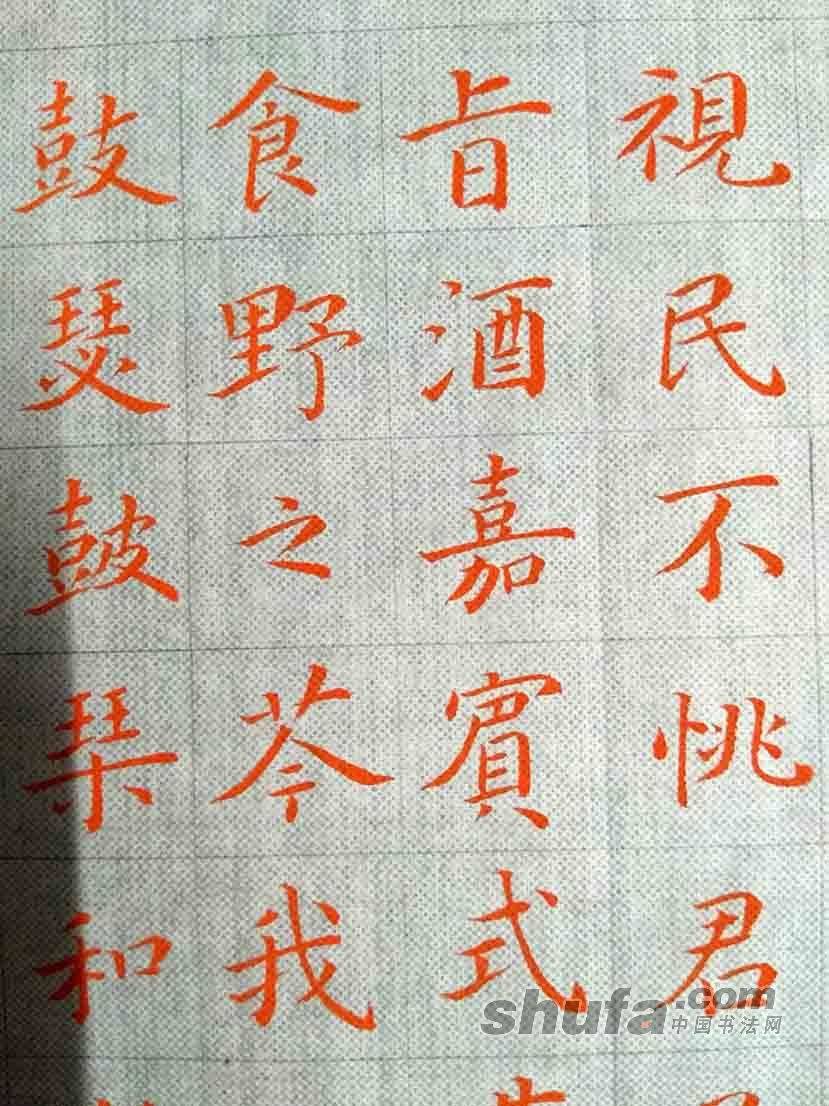 視民不恌君
旨酒嘉賓式
食野之芩我
鼓瑟鼓琴和
shufa.com
中国书法网